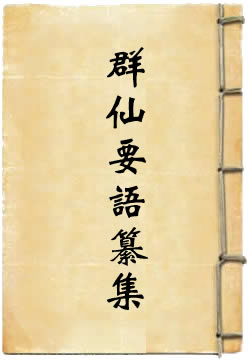 群仙要語纂集